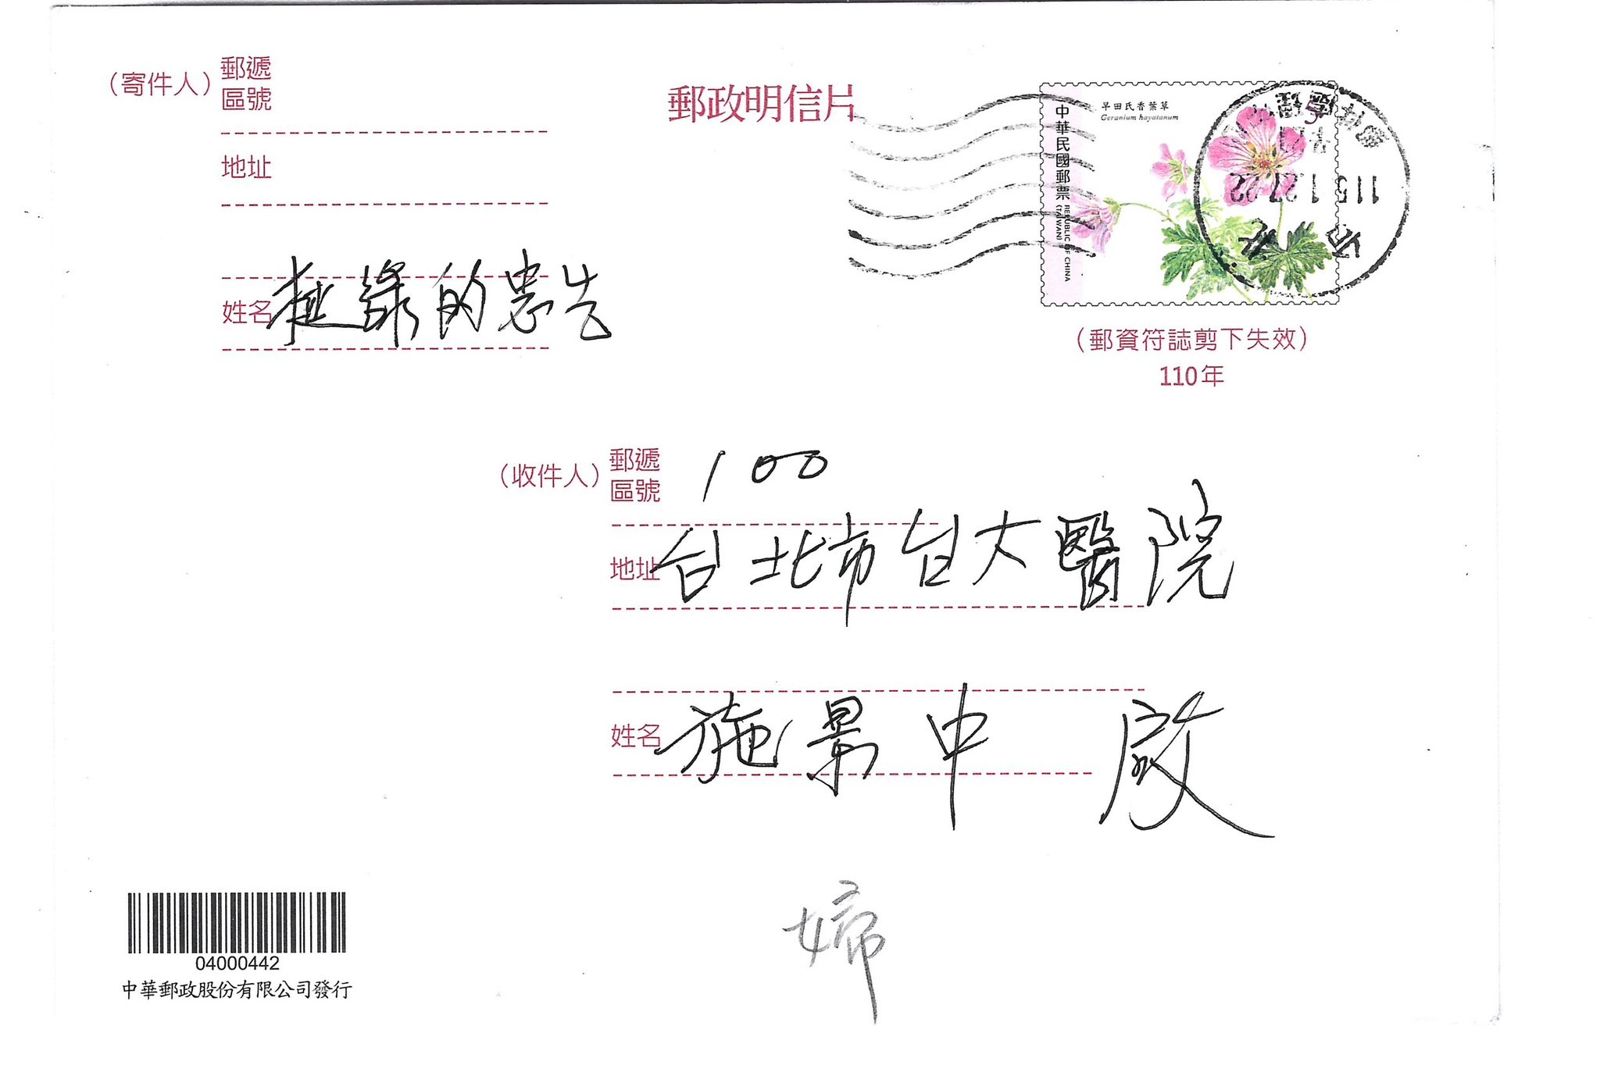 (寄件人) 郵遞區號
郵政明信片
早田氏香葉草
Geranium hayatanum
中華民國郵票
REPUBLIC OF CHINA (TAIWAN)
115.1.27.22
地址
姓名 極綠的忠告
(郵資符誌剪下失效)
110年
(收件人) 郵遞區號 100
地址 台北市台大醫院
姓名 施景中 啟
婦
04000442
中華郵政股份有限公司發行